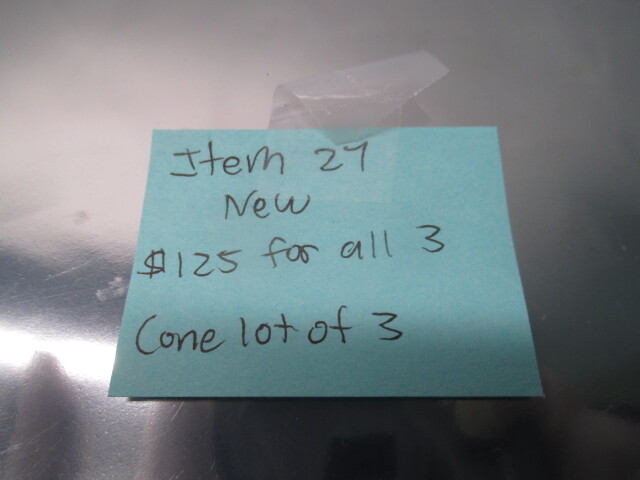 Item 27
New
$125 for all 3
Cone lot of 3